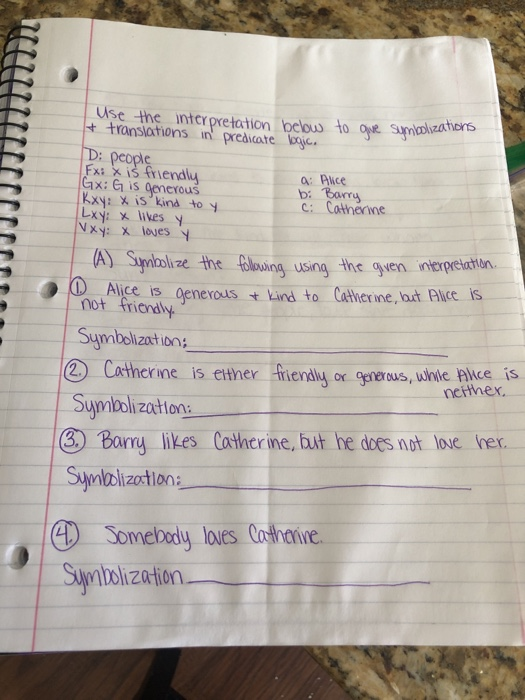 Use the interpretation below to give symbolizations
+ translations in predicate logic.
D: people
Fx: x is friendly
Gx: G is generous
Kxy: x is kind to y
Lxy: x likes y
Vxy: x loves y
a: Alice
b: Barry
c: Catherine
(A) Symbolize the following using the given interpretation.
① Alice is generous + kind to Catherine, but Alice is
not friendly.
Symbolization:
② Catherine is either friendly or generous, while Alice is
neither.
Symbolization:
③ Barry likes Catherine, but he does not love her.
Symbolization:
④ Somebody loves Catherine.
Symbolization